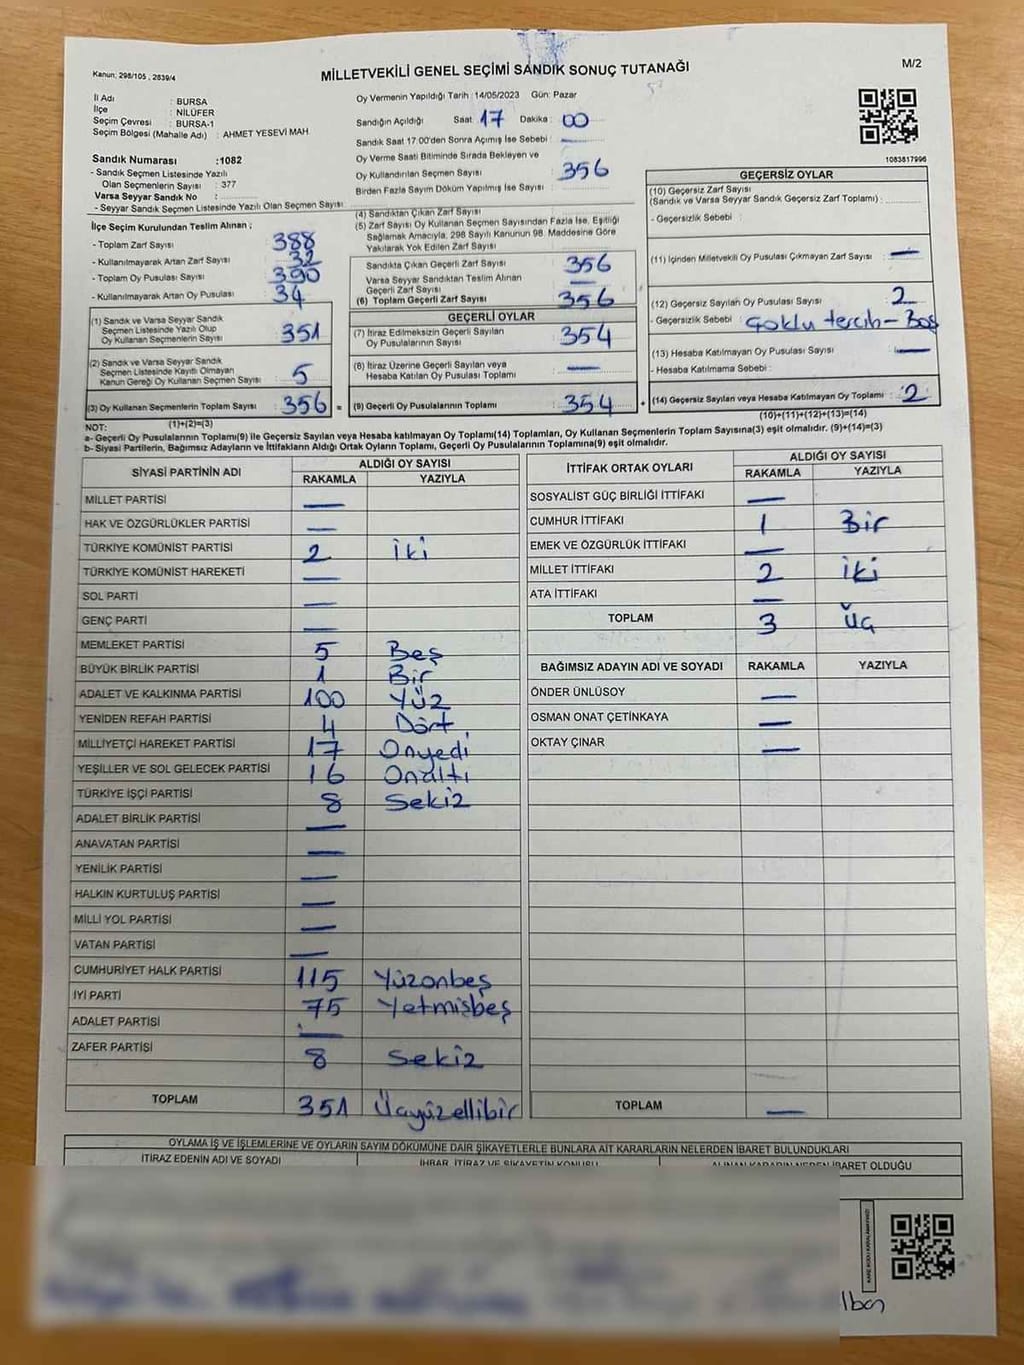 Kanun: 298/105 , 2839/4
MİLLETVEKİLİ GENEL SEÇİMİ SANDIK SONUÇ TUTANAĞI
M/2
İl Adı : BURSA
İlçe : NİLÜFER
Seçim Çevresi : BURSA-1
Seçim Bölgesi (Mahalle Adı) : AHMET YESEVİ MAH
Sandık Numarası :1082
- Sandık Seçmen Listesinde Yazılı
Olan Seçmenlerin Sayısı : 377
Varsa Seyyar Sandık No :
- Seyyar Sandık Seçmen Listesinde Yazılı Olan Seçmen Sayısı :
İlçe Seçim Kurulundan Teslim Alınan ;
- Toplam Zarf Sayısı 388
- Kullanılmayarak Artan Zarf Sayısı 32
- Toplam Oy Pusulası Sayısı 390
- Kullanılmayarak Artan Oy Pusulası 34
(1) Sandık ve Varsa Seyyar Sandık
Seçmen Listesinde Yazılı Olup
Oy Kullanan Seçmenlerin Sayısı 351
(2) Sandık ve Varsa Seyyar Sandık
Seçmen Listesinde Kayıtlı Olmayan
Kanun Gereği Oy Kullanan Seçmen Sayısı 5
(3) Oy Kullanan Seçmenlerin Toplam Sayısı 356 =
(1)+(2)=(3)
Oy Vermenin Yapıldığı Tarih : 14/05/2023 Gün: Pazar
Sandığın Açıldığı Saat 17 Dakika : 00
Sandık Saat 17:00'den Sonra Açımış İse Sebebi : —
Oy Verme Saati Bitiminde Sırada Bekleyen ve
Oy Kullandırılan Seçmen Sayısı : 356
Birden Fazla Sayım Döküm Yapılmış İse Sayısı :
(4) Sandıktan Çıkan Zarf Sayısı
(5) Zarf Sayısı Oy Kullanan Seçmen Sayısından Fazla İse, Eşitliği
Sağlamak Amacıyla, 298 Sayılı Kanunun 98. Maddesine Göre
Yakılarak Yok Edilen Zarf Sayısı
Sandıkta Çıkan Geçerli Zarf Sayısı 356
Varsa Seyyar Sandıktan Teslim Alınan
Geçerli Zarf Sayısı —
(6) Toplam Geçerli Zarf Sayısı 356
GEÇERLİ OYLAR
(7) İtiraz Edilmeksizin Geçerli Sayılan
Oy Pusulalarının Sayısı 354
(8) İtiraz Üzerine Geçerli Sayılan veya
Hesaba Katılan Oy Pusulası Toplamı —
(9) Geçerli Oy Pusulalarının Toplamı 354 +
1083817996
GEÇERSİZ OYLAR
(10) Geçersiz Zarf Sayısı
(Sandık ve Varsa Seyyar Sandık Geçersiz Zarf Toplamı) :
- Geçersizlik Sebebi :
(11) İçinden Milletvekili Oy Pusulası Çıkmayan Zarf Sayısı : —
(12) Geçersiz Sayılan Oy Pusulası Sayısı 2
- Geçersizlik Sebebi : Çoklu tercih - Boş
(13) Hesaba Katılmayan Oy Pusulası Sayısı —
- Hesaba Katılmama Sebebi :
(14) Geçersiz Sayılan veya Hesaba Katılmayan Oy Toplamı : 2
(10)+(11)+(12)+(13)=(14)
NOT:
a- Geçerli Oy Pusulalarının Toplamı(9) ile Geçersiz Sayılan veya Hesaba katılmayan Oy Toplamı(14) Toplamları, Oy Kullanan Seçmenlerin Toplam Sayısına(3) eşit olmalıdır. (9)+(14)=(3)
b- Siyasi Partilerin, Bağımsız Adayların ve İttifakların Aldığı Ortak Oyların Toplamı, Geçerli Oy Pusulalarının Toplamına(9) eşit olmalıdır.
SİYASİ PARTİNİN ADI ALDIĞI OY SAYISI
RAKAMLA YAZIYLA
MİLLET PARTİSİ —
HAK VE ÖZGÜRLÜKLER PARTİSİ —
TÜRKİYE KOMÜNİST PARTİSİ 2 iki
TÜRKİYE KOMÜNİST HAREKETİ —
SOL PARTİ —
GENÇ PARTİ —
MEMLEKET PARTİSİ 5 Beş
BÜYÜK BİRLİK PARTİSİ 1 Bir
ADALET VE KALKINMA PARTİSİ 100 Yüz
YENİDEN REFAH PARTİSİ 4 Dört
MİLLİYETÇİ HAREKET PARTİSİ 17 Onyedi
YEŞİLLER VE SOL GELECEK PARTİSİ 16 Onaltı
TÜRKİYE İŞÇİ PARTİSİ 8 Sekiz
ADALET BİRLİK PARTİSİ —
ANAVATAN PARTİSİ —
YENİLİK PARTİSİ —
HALKIN KURTULUŞ PARTİSİ —
MİLLİ YOL PARTİSİ —
VATAN PARTİSİ —
CUMHURİYET HALK PARTİSİ 115 Yüzonbeş
İYİ PARTİ 75 Yetmişbeş
ADALET PARTİSİ —
ZAFER PARTİSİ 8 Sekiz
TOPLAM 351 Üçyüzellibir
İTTİFAK ORTAK OYLARI ALDIĞI OY SAYISI
RAKAMLA YAZIYLA
SOSYALİST GÜÇ BİRLİĞİ İTTİFAKI —
CUMHUR İTTİFAKI 1 Bir
EMEK VE ÖZGÜRLÜK İTTİFAKI —
MİLLET İTTİFAKI 2 iki
ATA İTTİFAKI —
TOPLAM 3 Üç
BAĞIMSIZ ADAYIN ADI VE SOYADI RAKAMLA YAZIYLA
ÖNDER ÜNLÜSOY —
OSMAN ONAT ÇETİNKAYA —
OKTAY ÇINAR —
TOPLAM —
OYLAMA İŞ VE İŞLEMLERİNE VE OYLARIN SAYIM DÖKÜMÜNE DAİR ŞİKAYETLERLE BUNLARA AİT KARARLARIN NELERDEN İBARET BULUNDUKLARI
İTİRAZ EDENİN ADI VE SOYADI İHBAR, İTİRAZ VE ŞİKAYETİN KONUSU ALINAN KARARIN NEDEN İBARET OLDUĞU